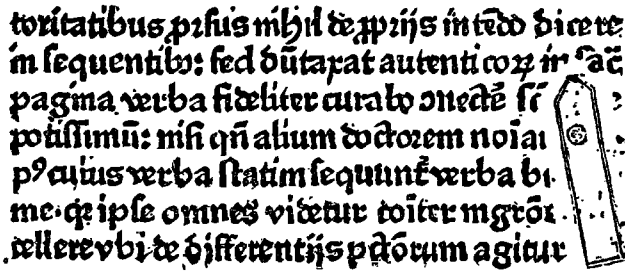 toritatibus ꝓrsus nihil de ꝓprijs intēdo dicere
in sequentibꝰ: sed dūtaxat autenticoꝝ in sac̄
pagina verba fideliter curabo ↄnectē
potissimū: nisi qñ alium doctorem
pꝰ cuius verba statim sequunt̄ verba
me. qꝛ ipse omnes videtur cōiter
cellere vbi de differentijs pctōrum agitur